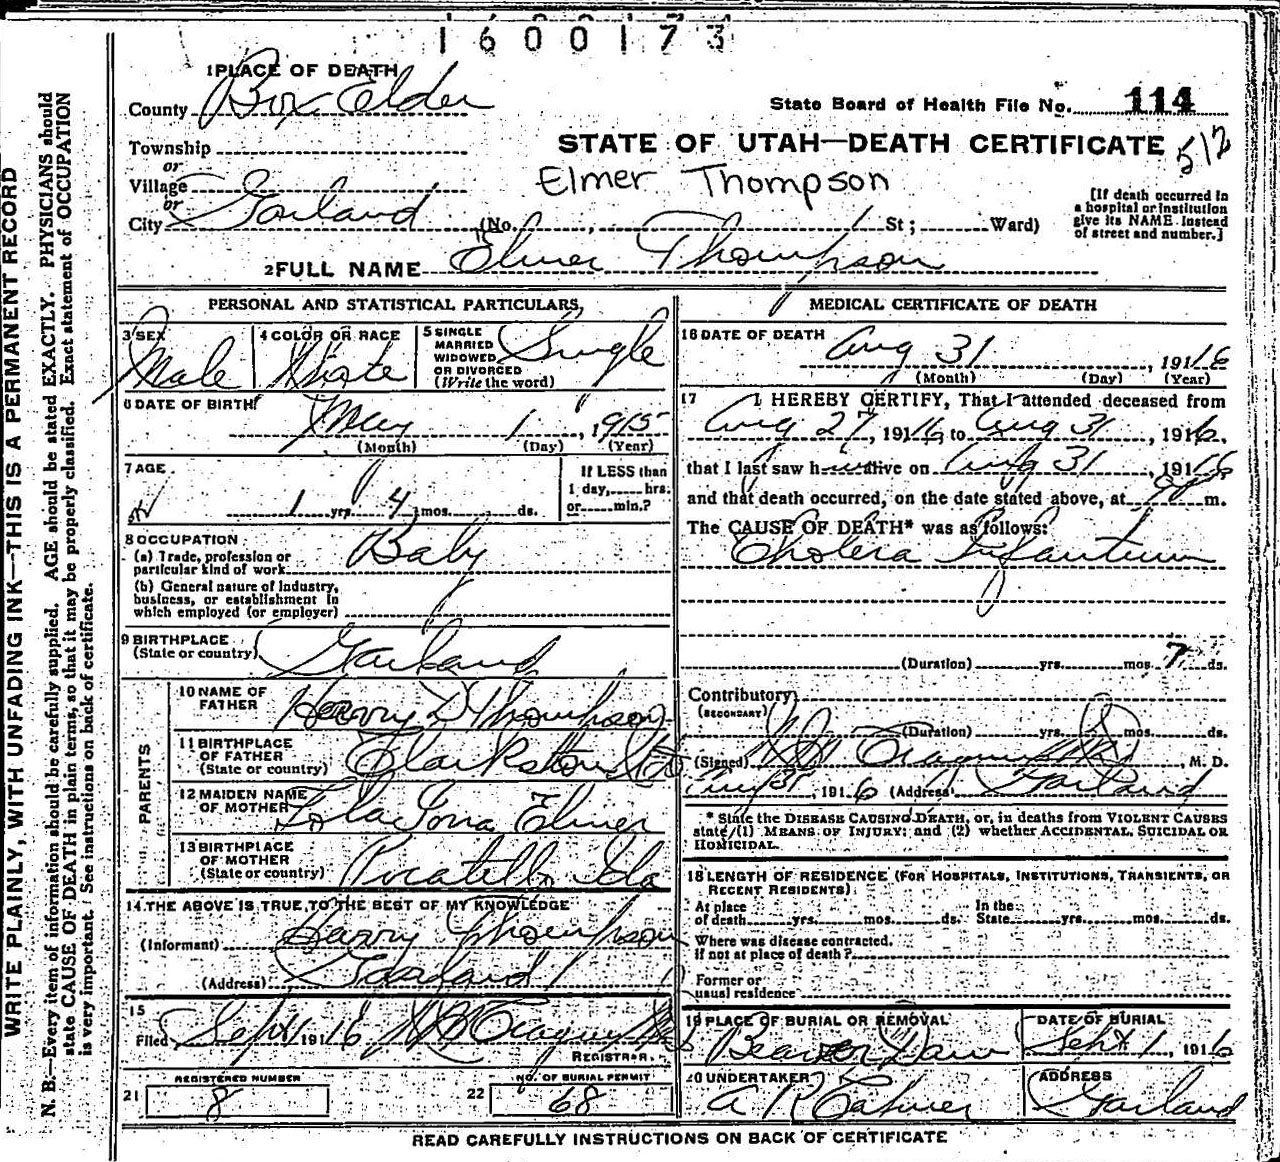 1600173
1 PLACE OF DEATH
County Box Elder
State Board of Health File No. 114
Township
STATE OF UTAH—DEATH CERTIFICATE 512
or
Village
Elmer Thompson
or
City Garland (No. , St; Ward)
[If death occurred in
a hospital or institution
give its NAME instead
of street and number.]
2 FULL NAME Elmer Thompson
PERSONAL AND STATISTICAL PARTICULARS
3 SEX Male
4 COLOR OR RACE White
5 SINGLE
MARRIED
WIDOWED
OR DIVORCED
(Write the word) Single
6 DATE OF BIRTH
May 1, 1915
(Month) (Day) (Year)
7 AGE
1 yrs. 4 mos. ds.
If LESS than
1 day, hrs.
or min.?
8 OCCUPATION
(a) Trade, profession or
particular kind of work Baby
(b) General nature of industry,
business, or establishment in
which employed (or employer)
9 BIRTHPLACE
(State or country) Garland
PARENTS
10 NAME OF
FATHER Harry D Thompson
11 BIRTHPLACE
OF FATHER
(State or country) Clarkston
12 MAIDEN NAME
OF MOTHER Elmer
13 BIRTHPLACE
OF MOTHER
(State or country) Pocatello Ida
14 THE ABOVE IS TRUE TO THE BEST OF MY KNOWLEDGE
(Informant) Harry Thompson
(Address) Garland
15
Filed Sept 1 1916
REGISTRAR.
REGISTERED NUMBER
21 8
NO. OF BURIAL PERMIT
22 68
MEDICAL CERTIFICATE OF DEATH
16 DATE OF DEATH
Aug 31, 1916
(Month) (Day) (Year)
17 I HEREBY CERTIFY, That I attended deceased from
Aug 27, 1916 to Aug 31, 1916,
that I last saw him alive on Aug 31, 1916
and that death occurred, on the date stated above, at m.
The CAUSE OF DEATH* was as follows:
Cholera Infantum
(Duration) yrs. mos. 7 ds.
Contributory
(SECONDARY)
(Duration) yrs. mos. ds.
(Signed) , M. D.
Aug 31, 1916 (Address) Garland
* State the DISEASE CAUSING DEATH, or, in deaths from VIOLENT CAUSES
state (1) MEANS OF INJURY; and (2) whether ACCIDENTAL, SUICIDAL OR
HOMICIDAL.
18 LENGTH OF RESIDENCE (FOR HOSPITALS, INSTITUTIONS, TRANSIENTS, OR
RECENT RESIDENTS).
At place
of death yrs. mos. ds.
In the
State yrs. mos. ds.
Where was disease contracted.
if not at place of death?
Former or
usual residence
19 PLACE OF BURIAL OR REMOVAL
Beaver Dam
DATE OF BURIAL
Sept 1, 1916
20 UNDERTAKER
A R
ADDRESS
Garland
READ CAREFULLY INSTRUCTIONS ON BACK OF CERTIFICATE
WRITE PLAINLY, WITH UNFADING INK—THIS IS A PERMANENT RECORD
N. B.—Every item of information should be carefully supplied. AGE should be stated EXACTLY. PHYSICIANS should
state CAUSE OF DEATH in plain terms, so that it may be properly classified. Exact statement of OCCUPATION
is very important. See instructions on back of certificate.